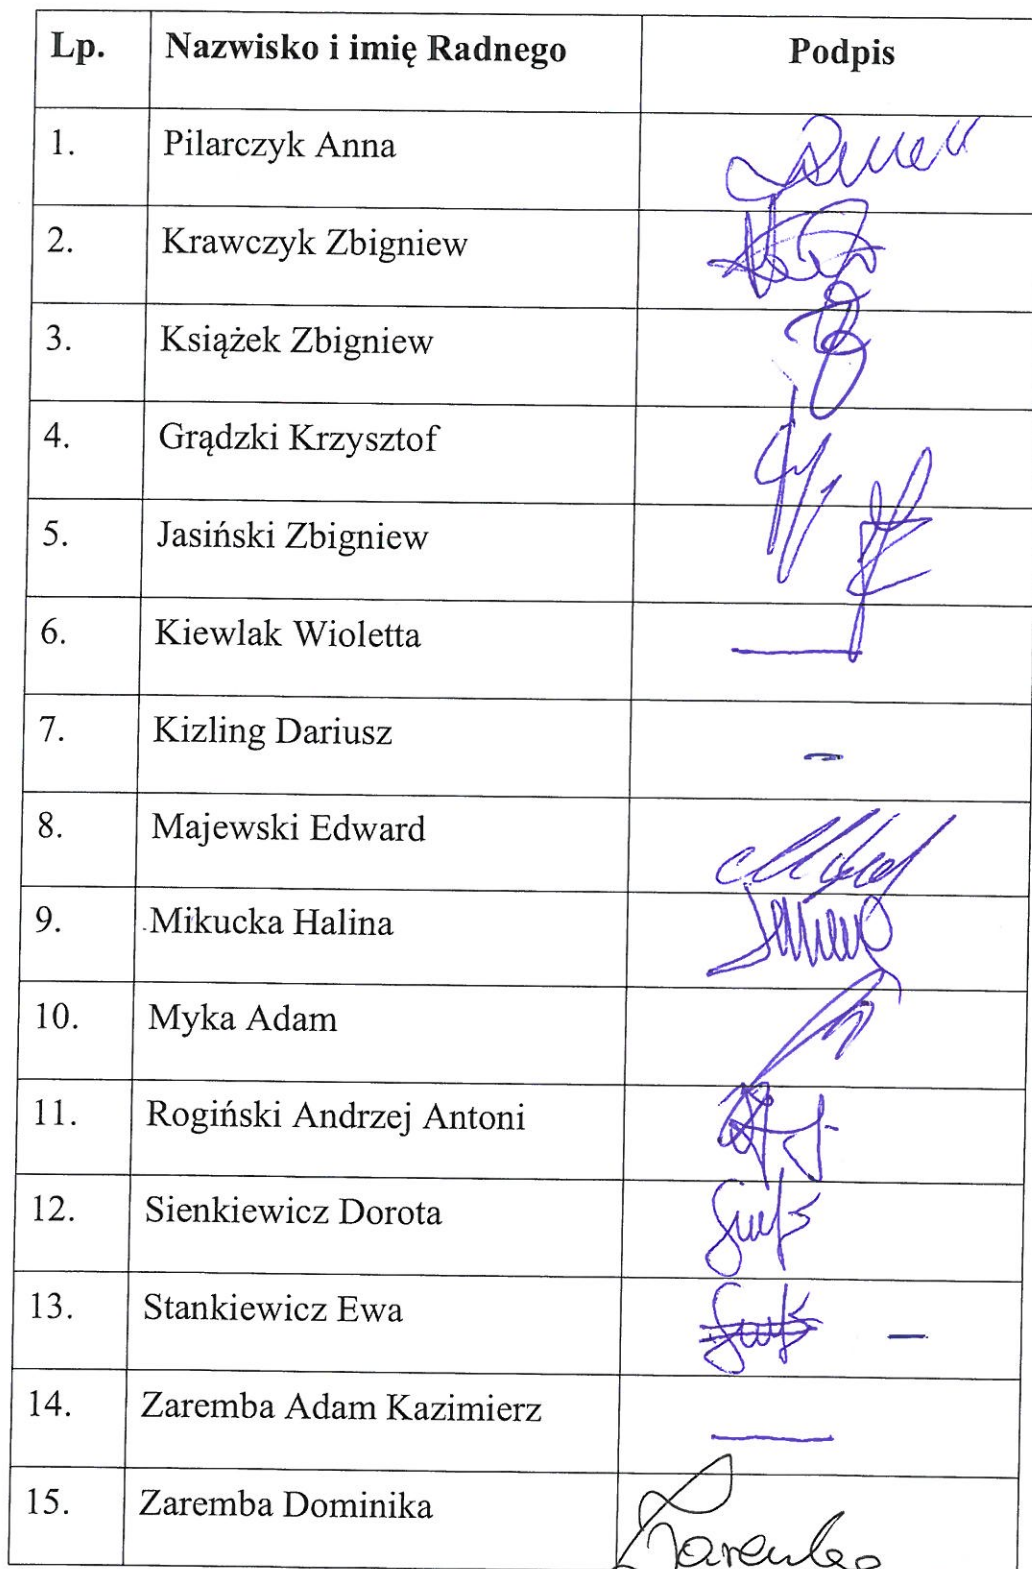 Lp. Nazwisko i imię Radnego Podpis
1. Pilarczyk Anna
2. Krawczyk Zbigniew
3. Książek Zbigniew
4. Grądzki Krzysztof
5. Jasiński Zbigniew
6. Kiewlak Wioletta —
7. Kizling Dariusz –
8. Majewski Edward
9. Mikucka Halina
10. Myka Adam
11. Rogiński Andrzej Antoni
12. Sienkiewicz Dorota
13. Stankiewicz Ewa –
14. Zaremba Adam Kazimierz —
15. Zaremba Dominika Zaremba